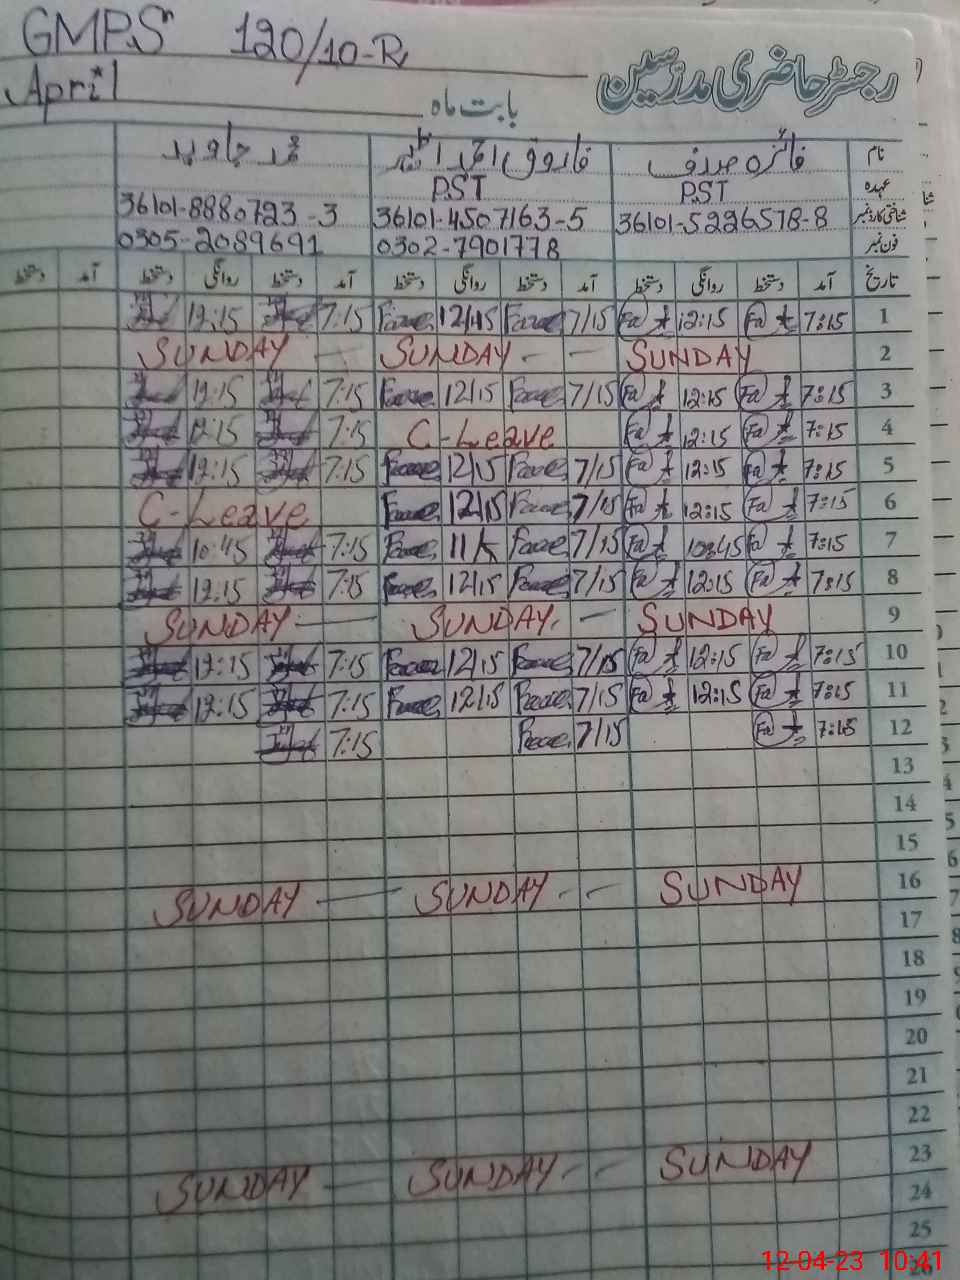 GMPS 120/10-R
رجسٹر حاضری مدرسین
April
بابت ماہ
نام فائزہ صدف فاروق احمد جاوید
عہدہ PST PST
شناختی کارڈ نمبر 36101-5226578-8 36101-4507163-5 36101-8880723-3
فون نمبر 0302-7901778 0305-2089691
تاریخ آمد دستخط روانگی دستخط آمد دستخط روانگی دستخط آمد دستخط روانگی دستخط آمد دستخط
12:15 7:15 12/15 7/15 Fa 12:15 Fa 7:15 1
SUNDAY SUNDAY SUNDAY 2
12:15 7:15 12/15 7/15 Fa 12:15 Fa 7:15 3
12:15 7:15 C-Leave Fa 12:15 Fa 7:15 4
12:15 7:15 12/15 7/15 Fa 12:15 Fa 7:15 5
C-Leave 12/15 7/15 Fa 12:15 Fa 7:15 6
10:45 7:15 7/15 Fa 10:45 Fa 7:15 7
12:15 7:15 12/15 7/15 Fa 12:15 Fa 7:15 8
SUNDAY SUNDAY SUNDAY 9
12:15 7:15 12/15 7/15 Fa 12:15 Fa 7:15 10
12:15 7:15 12/15 7/15 Fa 12:15 Fa 7:15 11
7:15 7/15 Fa 7:15 12
13
14
15
SUNDAY SUNDAY SUNDAY 16
17
18
19
20
21
22
SUNDAY SUNDAY SUNDAY 23
24
25
26
12-04-23 10:41